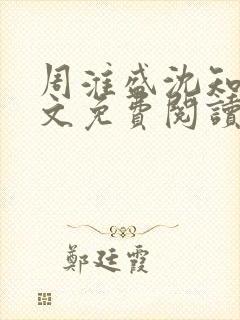 周漼盛沈知
文免費閱讀
鄭廷霞